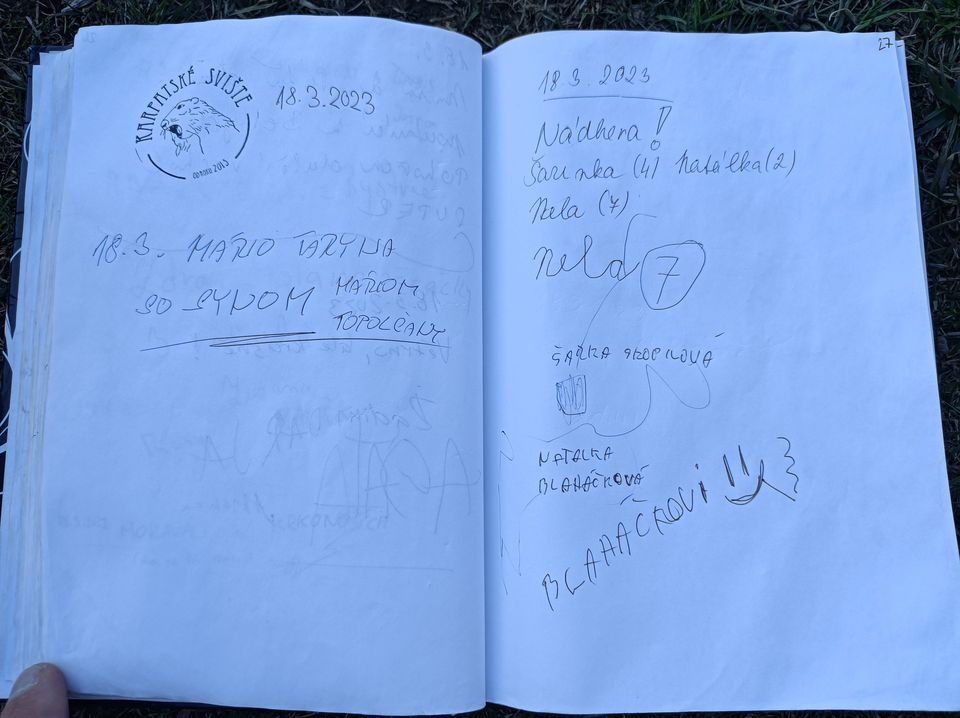 KARPATSKÉ SVIŠTE
OD ROKU 2013
18.3.2023
18.3. MÁRIO TARYNA
SO SYNOM MARIOM
TOPOLČANY
27
18.3.2023
Nádhera!
Šarinka (4) Natálka (2)
Nela (7)
Nela 7
ŠARKA
NATALKA
BLAHÁČKOVÁ
BLAHÁČKOVI